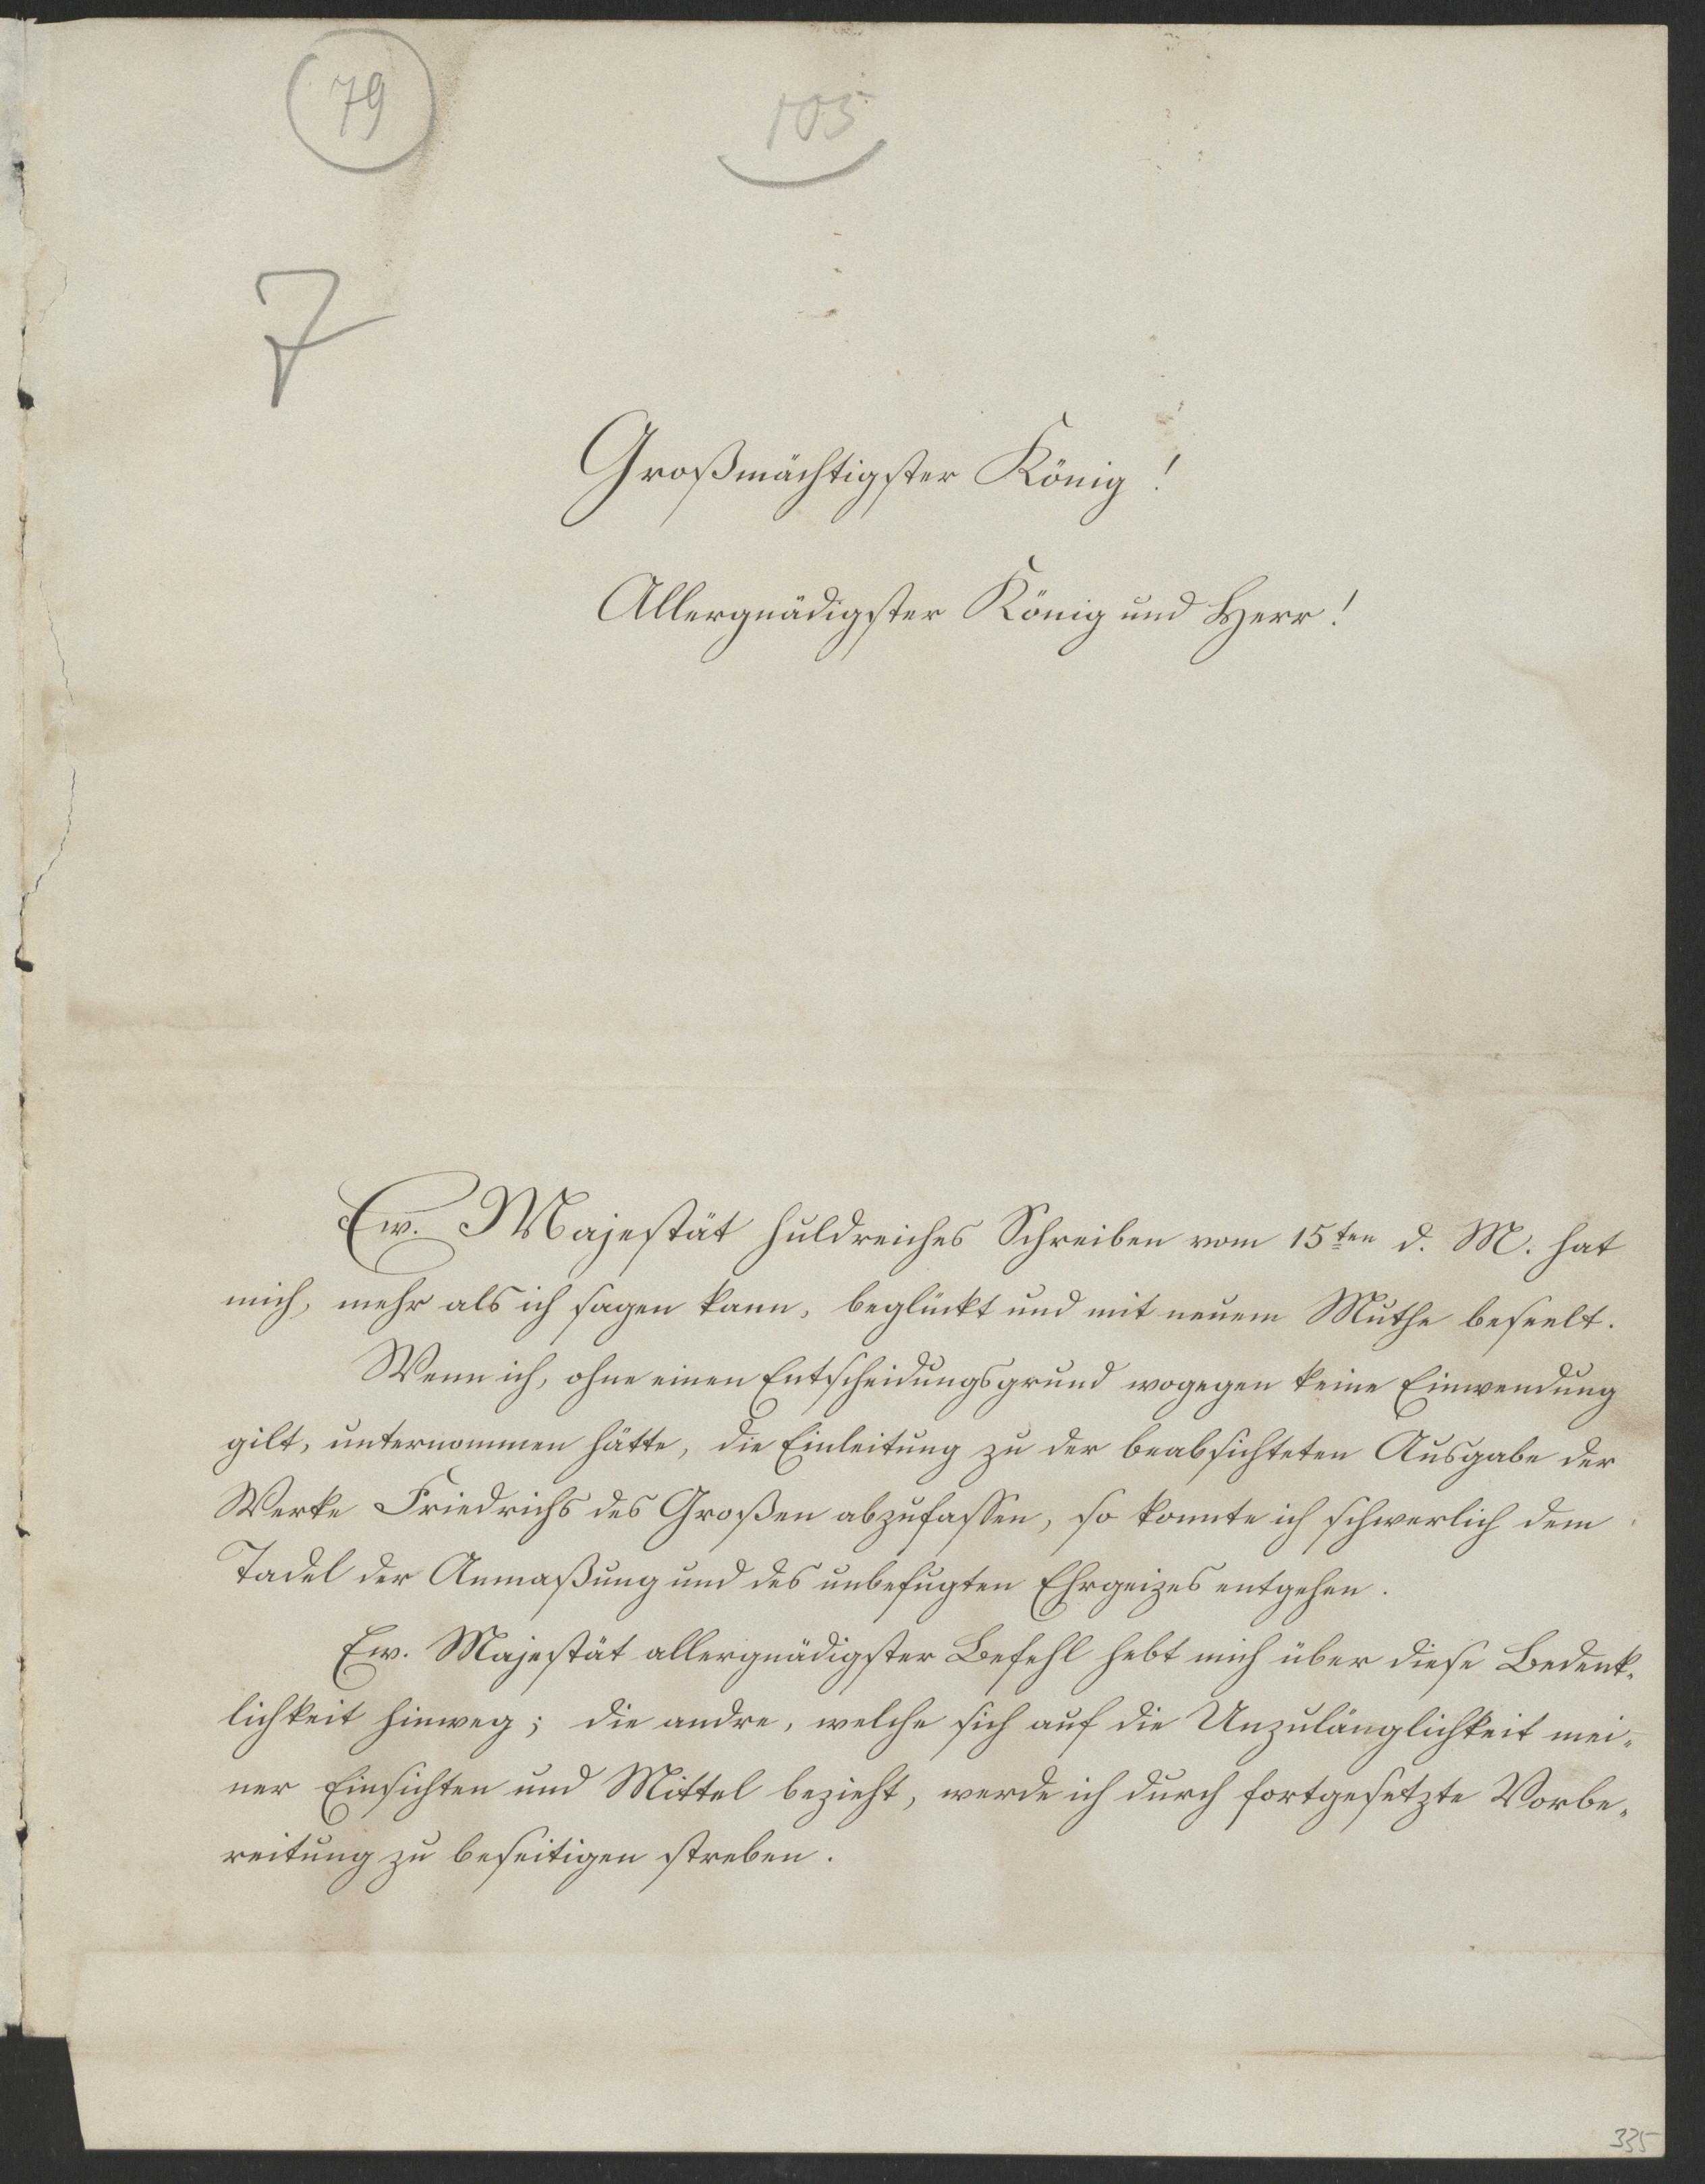 79
105
7
Großmächtigster König!
Allergnädigster König und Herr!
Ew. Majestät huldreiches Schreiben vom 15ten d. M. hat
mich, mehr als ich sagen kann, beglückt und mit neuem Muthe beseelt.
Wenn ich, ohne einen Entscheidungsgrund wogegen keine Einwendung
gilt, unternommen hätte, die Einleitung zu der beabsichteten Ausgabe der
Werke Friedrichs des Großen abzufassen, so konnte ich schwerlich dem
Tadel der Anmaßung und des unbefugten Ehrgeizes entgehen.
Ew. Majestät allergnädigster Befehl hebt mich über diese Bedenk-
lichkeit hinweg; die andre, welche sich auf die Unzulänglichkeit mei-
ner Einsichten und Mittel bezieht, werde ich durch fortgesetzte Vorbe-
reitung zu beseitigen streben.
335